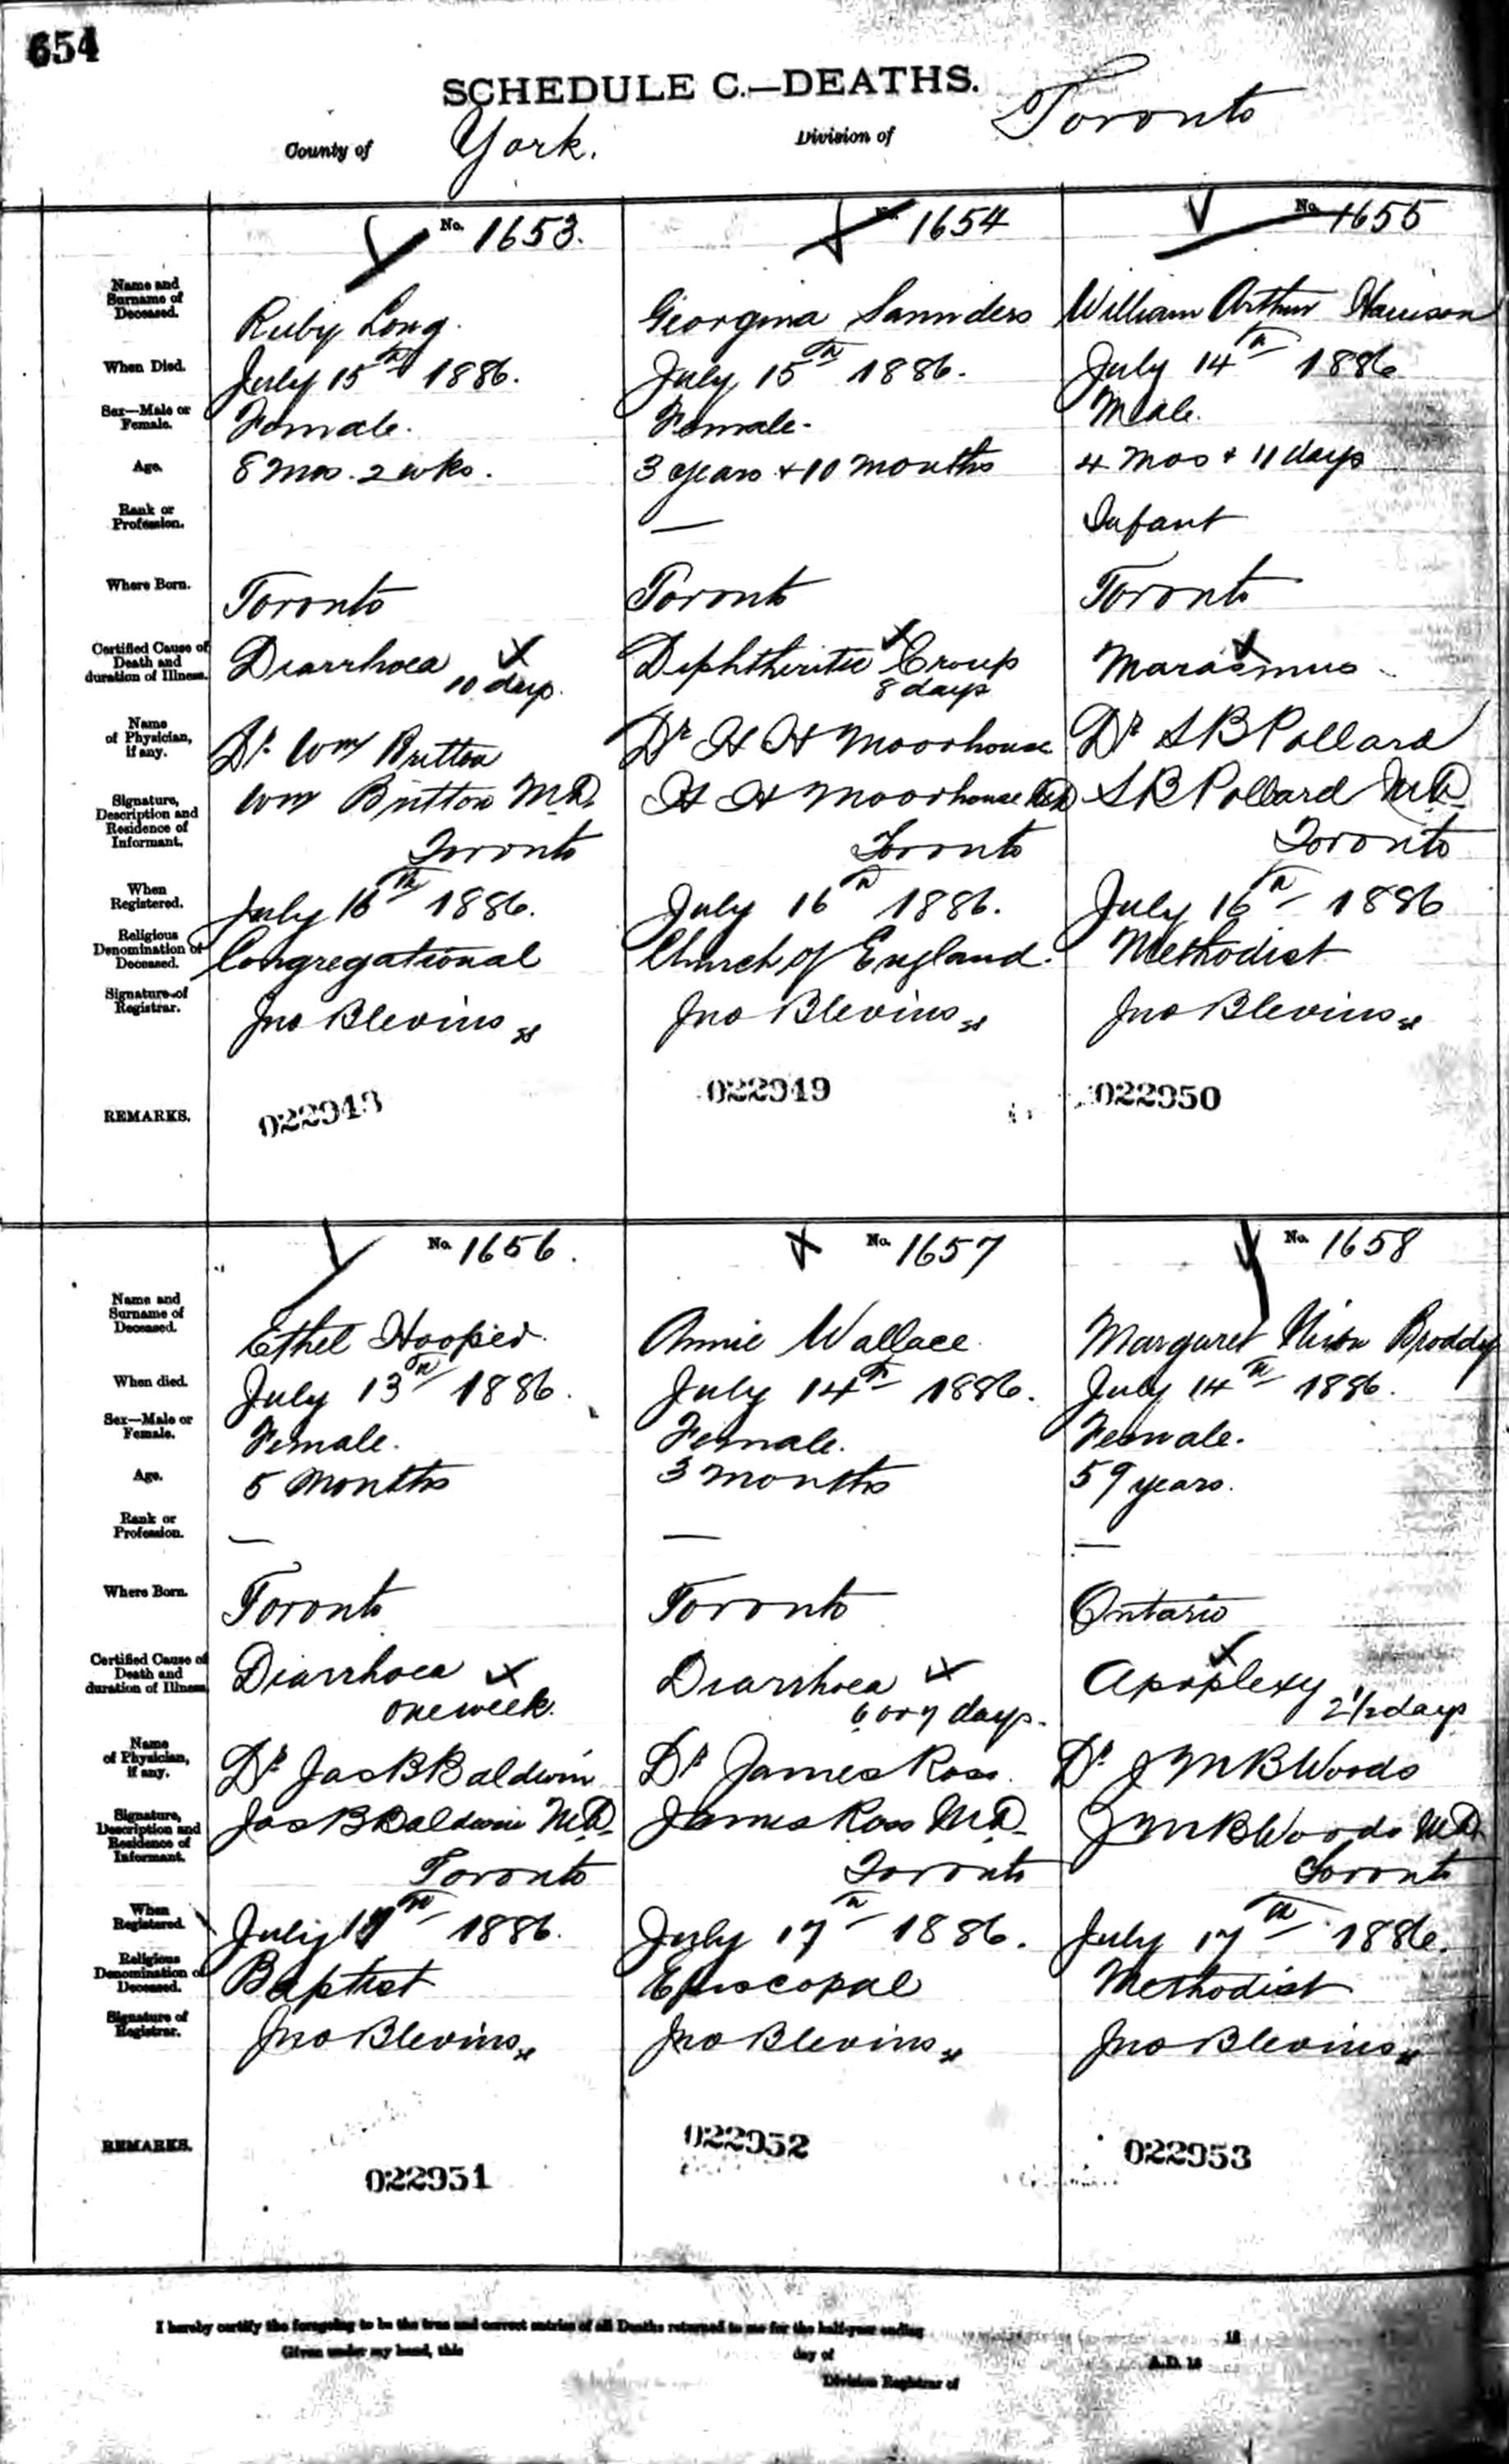 654
SCHEDULE C.—DEATHS.
County of York. Division of Toronto
No. 1653. No. 1654 No. 1655
Name and Surname of Deceased. Ruby Long. Georgina Saunders William Arthur Harrison
When Died. July 15th 1886. July 15th 1886. July 14th 1886
Sex—Male or Female. Female. Female. Male.
Age. 8 mos. 2 wks. 3 years + 10 months 4 mos + 11 days
Rank or Profession. — Infant
Where Born. Toronto Toronto Toronto
Certified Cause of Death and duration of Illness. Diarrhoea 10 days. Diphtheritic Croup 8 days Marasmus
Name of Physician, if any. Dr. Wm Britton Dr H H Moorhouse Dr S B Pollard
Signature, Description and Residence of Informant. Wm Britton M.D. H H Moorhouse MD S B Pollard M.D.
Toronto Toronto Toronto
When Registered. July 16th 1886. July 16th 1886. July 16th 1886
Religious Denomination of Deceased. Congregational Church of England. Methodist
Signature of Registrar. Jno Blevins Jno Blevins Jno Blevins
REMARKS. 022948 022949 022950
No. 1656. No. 1657 No. 1658
Name and Surname of Deceased. Ethel Hooper. Annie Wallace. Margaret Nixon Broddy
When died. July 13th 1886. July 14th 1886. July 14th 1886.
Sex—Male or Female. Female. Female. Female.
Age. 5 months 3 months 59 years.
Rank or Profession. — — —
Where Born. Toronto Toronto Ontario
Certified Cause of Death and duration of Illness. Diarrhoea one week. Diarrhoea 6 or 7 days. Apoplexy 2 1/2 days
Name of Physician, if any. Dr Jas B Baldwin Dr James Ross. Dr J M B Woods
Signature, Description and Residence of Informant. Jas B Baldwin M.D. James Ross M.D. J M B Woods M.D.
Toronto Toronto Toronto
When Registered. July 17th 1886. July 17th 1886. July 17th 1886.
Religious Denomination of Deceased. Baptist Episcopal Methodist
Signature of Registrar. Jno Blevins Jno Blevins Jno Blevins
REMARKS. 022951 022952 022953
I hereby certify the foregoing to be the true and correct entries of all Deaths returned to me for the half-year ending 18
Given under my hand, this day of A.D. 18
Division Registrar of